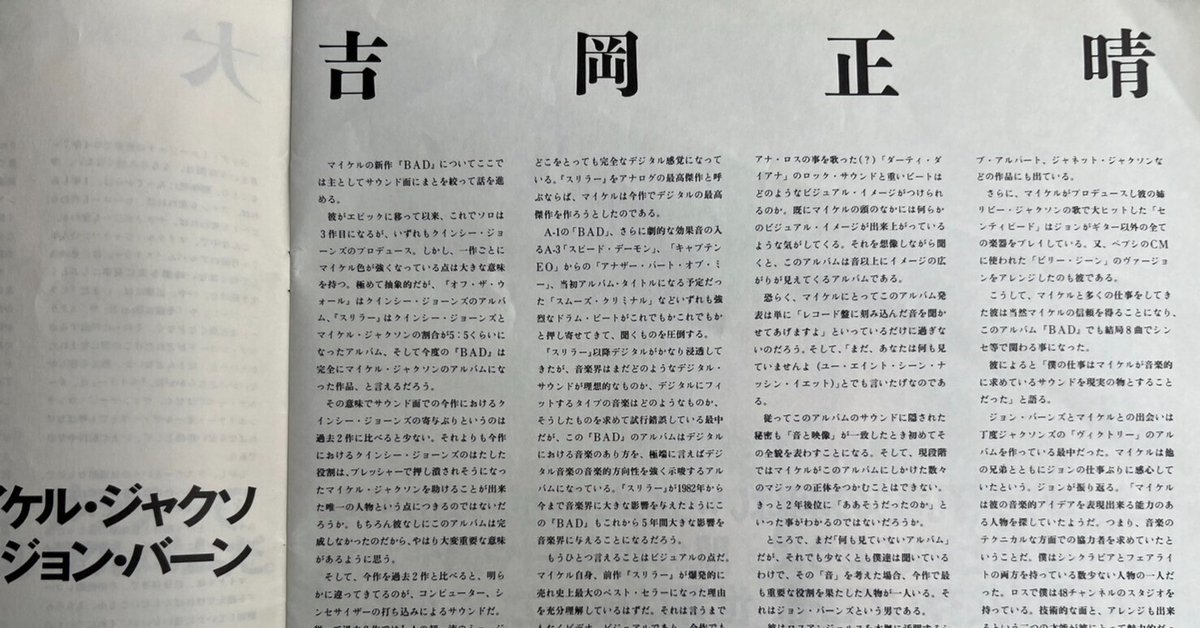 吉岡正晴
マイケルの新作『BAD』についてここで
は主としてサウンド面にまとを絞って話を進
める。
彼がエピックに移って以来、これでソロは
3作目になるが、いずれもクインシー・ジョ
ーンズのプロデュース。しかし、一作ごとに
マイケル色が強くなっている点は大きな意味
を持つ。極めて抽象的だが、『オフ・ザ・ウ
ォール』はクインシー・ジョーンズのアルバ
ム、『スリラー』はクインシー・ジョーンズと
マイケル・ジャクソンの割合が5:5くらいに
なったアルバム、そして今度の『BAD』は
完全にマイケル・ジャクソンのアルバムにな
った作品、と言えるだろう。
その意味でサウンド面での今作におけるク
インシー・ジョーンズの寄与ぶりというのは
過去2作に比べると少ない。それよりも今作
におけるクインシー・ジョーンズのはたした
役割は、プレッシャーで押し潰されそうになっ
たマイケル・ジャクソンを助けることが出来
た唯一の人物という点につきるのではないだ
ろうか。もちろん彼なしにこのアルバムは完
成しなかったのだから、やはり大変重要な意味
があるように思う。
そして、今作を過去2作と比べると、明ら
かに違ってきてるのが、コンピューター、シ
ンセサイザーの打ち込みによるサウンドだ。
どこをとっても完全なデジタル感覚になって
いる。『スリラー』をアナログの最高傑作と呼
ぶならば、マイケルは今作でデジタルの最高
傑作を作ろうとしたのである。
A-1の「BAD」、さらに劇的な効果音の入
るA-3「スピード・デーモン」、「キャプテン
EO」からの「アナザー・パート・オブ・ミ
ー」、当初アルバム・タイトルになる予定だっ
た「スムーズ・クリミナル」などいずれも強
烈なドラム・ビートがこれでもかこれでもか
と押し寄せてきて、聞くものを圧倒する。
『スリラー』以降デジタルがかなり浸透して
きたが、音楽界はまだどのようなデジタル・
サウンドが理想的なものか、デジタルにフィ
ットするタイプの音楽はどのようなものか、
そうしたものを求めて試行錯誤している最中
だが、この『BAD』のアルバムはデジタル
における音楽のあり方を、極端に言えばデジ
タル音楽の音楽的方向性を強く示唆するアル
バムになっている。『スリラー』が1982年から
今まで音楽界に大きい影響を与えたようにこ
の『BAD』もこれから5年間大きな影響を
音楽界に与えることになるだろう。
もうひとつ言えることはビジュアルの点だ。
マイケル自身、前作『スリラー』が爆発的に
売れ史上最大のベスト・セラーになった理由
を充分理解しているはずだ。それは言うまで
アナ・ロスの事を歌った(?)「ダーティ・ダ
イアナ」のロック・サウンドと重いビートは
どのようなビジュアル・イメージがつけられ
るのか。既にマイケルの頭のなかには何らか
のビジュアル・イメージが出来上がっている
ような気がしてくる。それを想像しながら聞
くと、このアルバムは音以上にイメージの広
がりが見えてくるアルバムである。
恐らく、マイケルにとってこのアルバム発
表は単に「レコード盤に刻み込んだ音を聞か
せてあげますよ」といっているだけに過ぎな
いのだろう。そして、「まだ、あなたは何も見
ていませんよ(ユー・エイント・シーン・ナ
ッシン・イエット)」とでも言いたげなのであ
る。
従ってこのアルバムのサウンドに隠された
秘密も「音と映像」が一致したとき初めてそ
の全貌を表わすことになる。そして、現段階
ではマイケルがこのアルバムにしかけた数々
のマジックの正体をつかむことはできない。
きっと2年後位に「ああそうだったのか」と
いった事がわかるのではないだろうか。
ところで、まだ「何も見ていないアルバム」
だが、それでも少なくとも僕達は聞いている
わけで、その「音」を考えた場合、今作で最
も重要な役割を果たした人物が一人いる。そ
れはジョン・バーンズという男である。
ブ・アルバート、ジャネット・ジャクソンな
どの作品にも出ている。
さらに、マイケルがプロデュースし彼の姉
リビー・ジャクソンの歌で大ヒットした「セ
ンティピード」はジョンがギター以外の全て
の楽器をプレイしている。又、ペプシのCM
に使われた「ビリー・ジーン」のヴァージョ
ンをアレンジしたのも彼である。
こうして、マイケルと多くの仕事をしてき
た彼は当然マイケルの信頼を得ることになり、
このアルバム『BAD』でも結局8曲でシン
セ等で関わる事になった。
彼によると「僕の仕事はマイケルが音楽的
に求めているサウンドを現実の物とすること
だった」と語る。
ジョン・バーンズとマイケルとの出会いは
丁度ジャクソンズの『ヴィクトリー』のアル
バムを作っている最中だった。マイケルは他
の兄弟とともにジョンの仕事ぶりに感心して
いたという。ジョンが振り返る。「マイケル
は彼の音楽的アイデアを表現出来る能力のあ
る人物を探していたようだ。つまり、音楽の
テクニカルな方面での協力者を求めていたと
いうことだ。僕はシンクラビアとフェアライ
トの両方を持っている数少ない人物の一人だ
った。ロスで僕は48チャンネルのスタジオを
持っている。技術的な面と、アレンジも出来
イケル・ジャクソ
ジョン・バーン